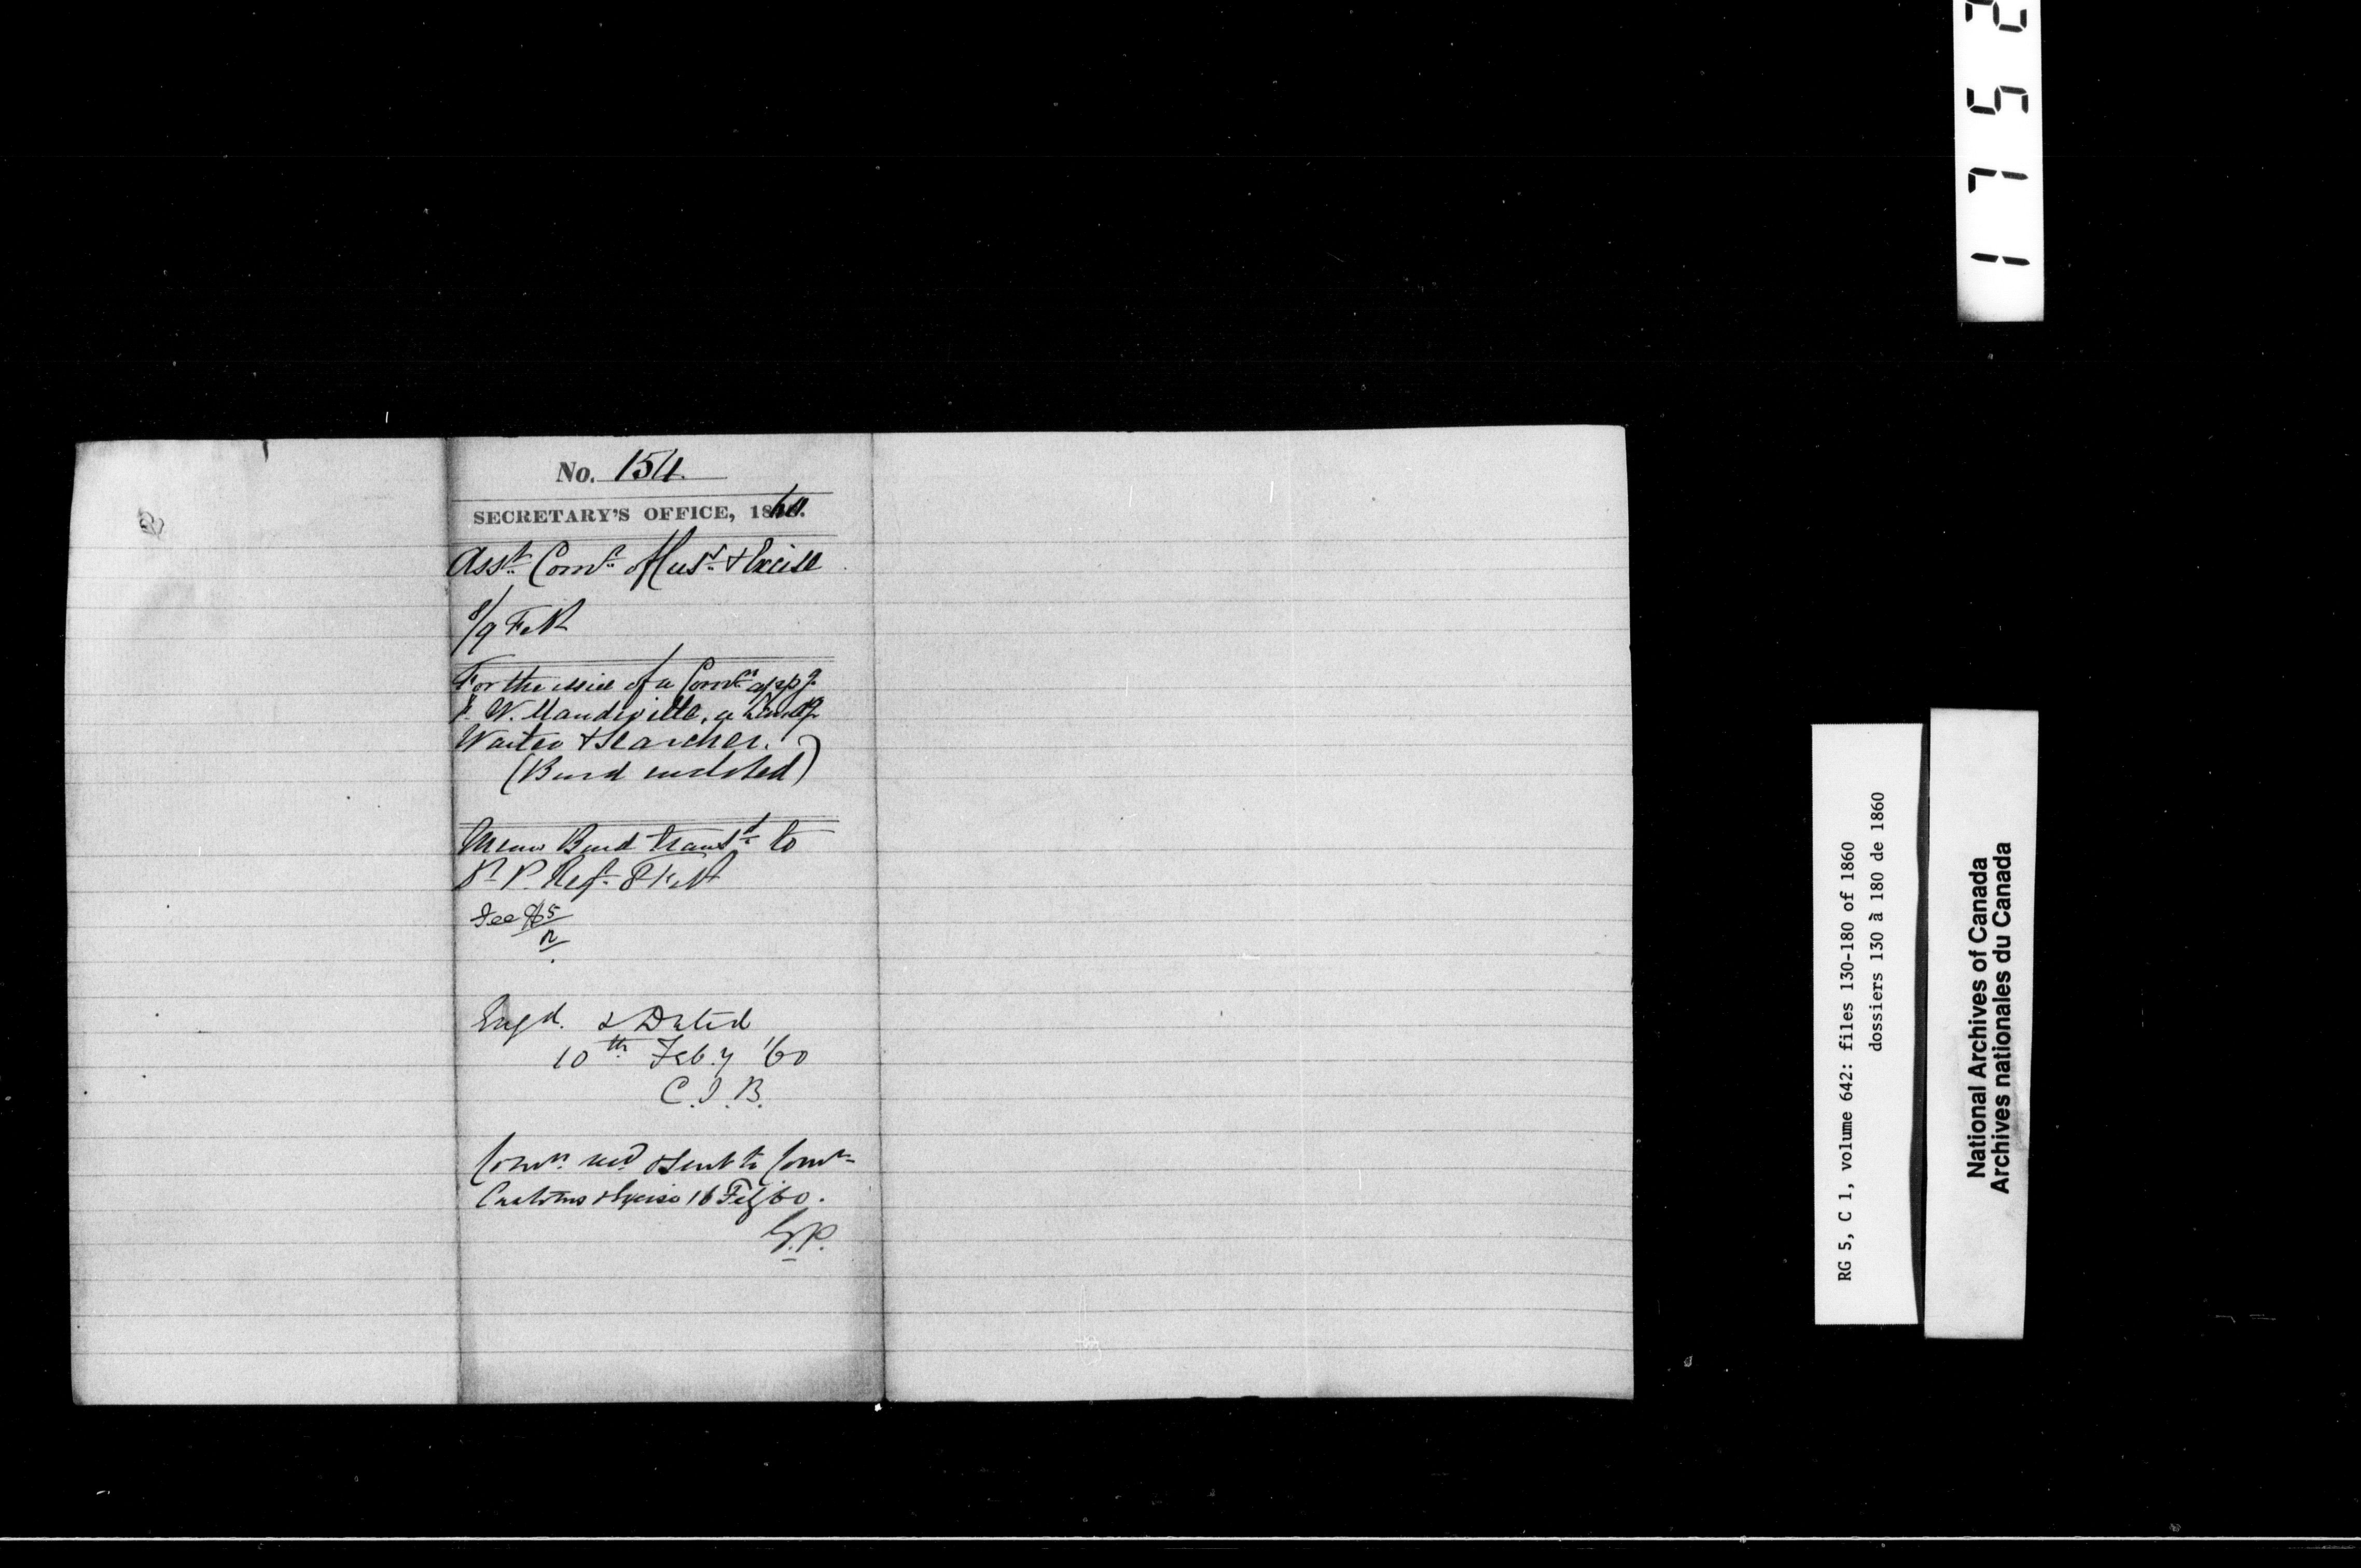 No. 154.
SECRETARY'S OFFICE, 1860.
Asst. Comr. of Cust. & Excise
8/9 Feb
For the issue of a Comn. appg.
J. W. Mandeville, a Landg.
Waiter & Searcher.
(Bond enclosed)
Memo Bond transd. to
P. Reg. 8 Feb
See
Engd. & Dated
10th Feby '60
C.J.B.
Comn. recd & sent to Comr.
Customs & Excise 16 Feb/60.
G.P.
1752
RG 5, C 1, volume 642: files 130-180 of 1860
dossiers 130 à 180 de 1860
National Archives of Canada
Archives nationales du Canada